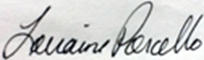 Lorraine Porcello